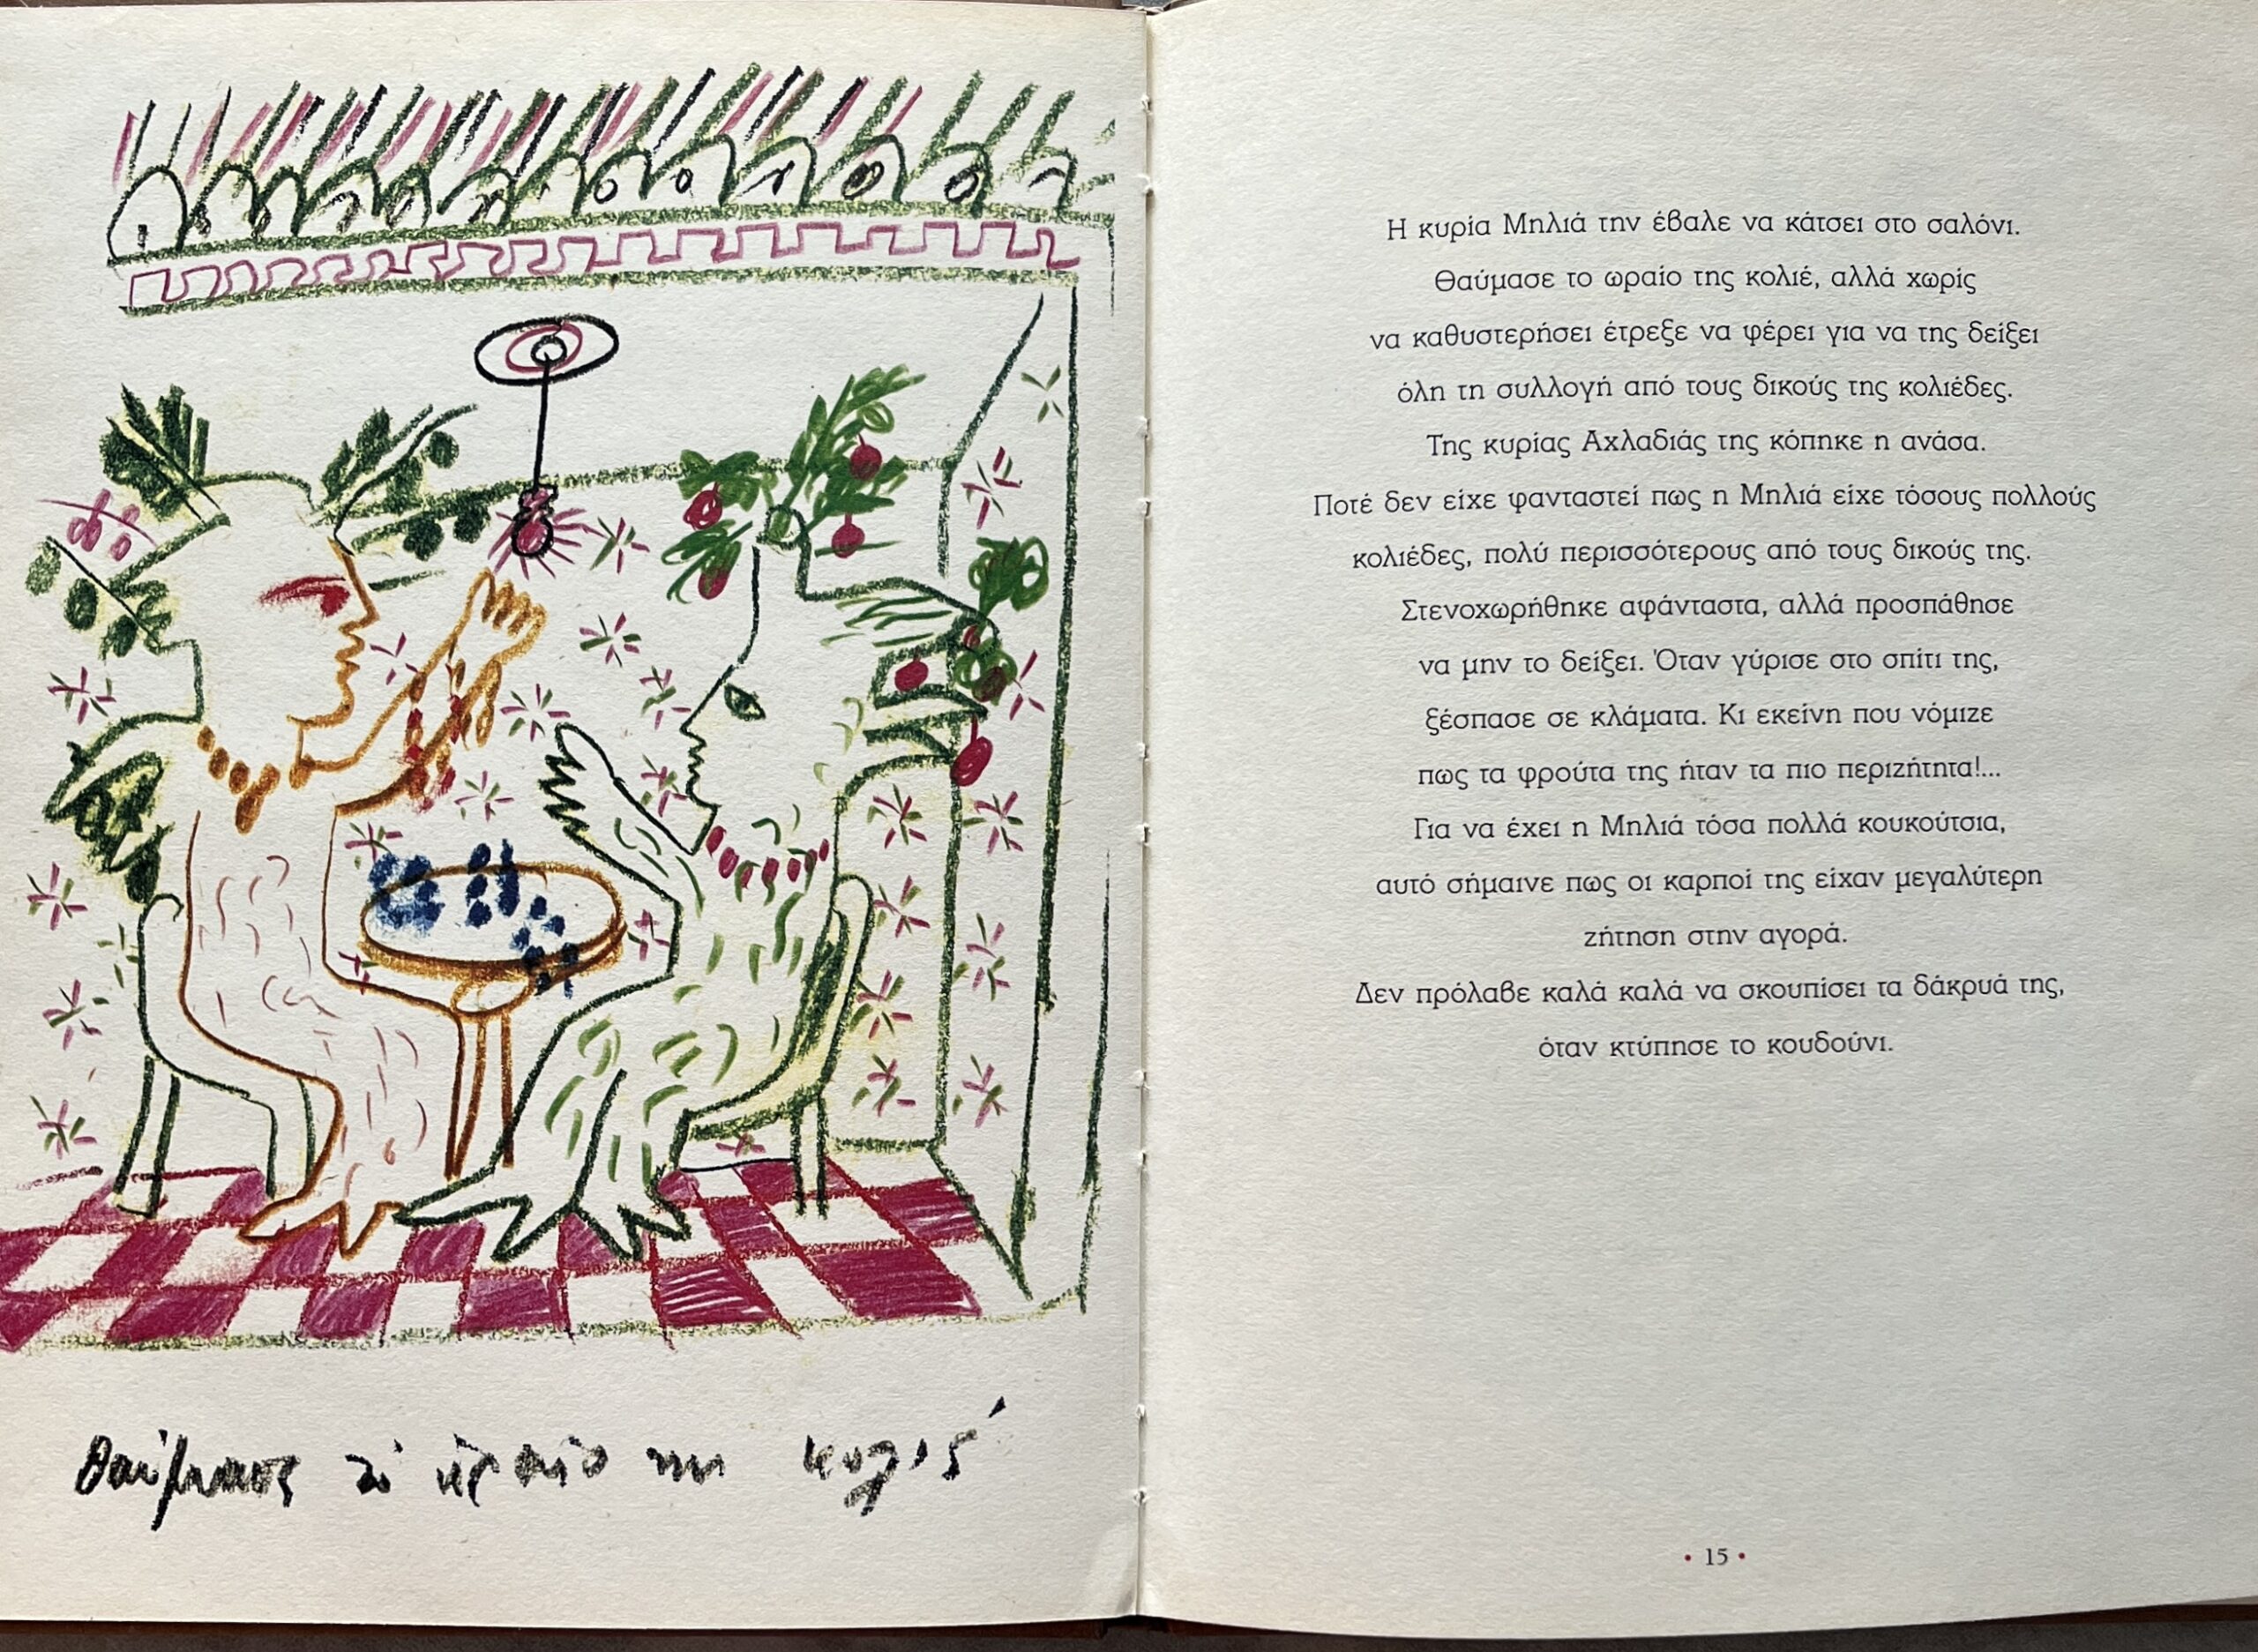 θαύμασε το ωραίο της κολιέ
Η κυρία Μηλιά την έβαλε να κάτσει στο σαλόνι.
Θαύμασε το ωραίο της κολιέ, αλλά χωρίς
να καθυστερήσει έτρεξε να φέρει για να της δείξει
όλη τη συλλογή από τους δικούς της κολιέδες.
Της κυρίας Αχλαδιάς της κόπηκε η ανάσα.
Ποτέ δεν είχε φανταστεί πως η Μηλιά είχε τόσους πολλούς
κολιέδες, πολύ περισσότερους από τους δικούς της.
Στενοχωρήθηκε αφάνταστα, αλλά προσπάθησε
να μην το δείξει. Όταν γύρισε στο σπίτι της,
ξέσπασε σε κλάματα. Κι εκείνη που νόμιζε
πως τα φρούτα της ήταν τα πιο περιζήτητα!...
Για να έχει η Μηλιά τόσα πολλά κουκούτσια,
αυτό σήμαινε πως οι καρποί της είχαν μεγαλύτερη
ζήτηση στην αγορά.
Δεν πρόλαβε καλά καλά να σκουπίσει τα δάκρυά της,
όταν κτύπησε το κουδούνι.
• 15 •